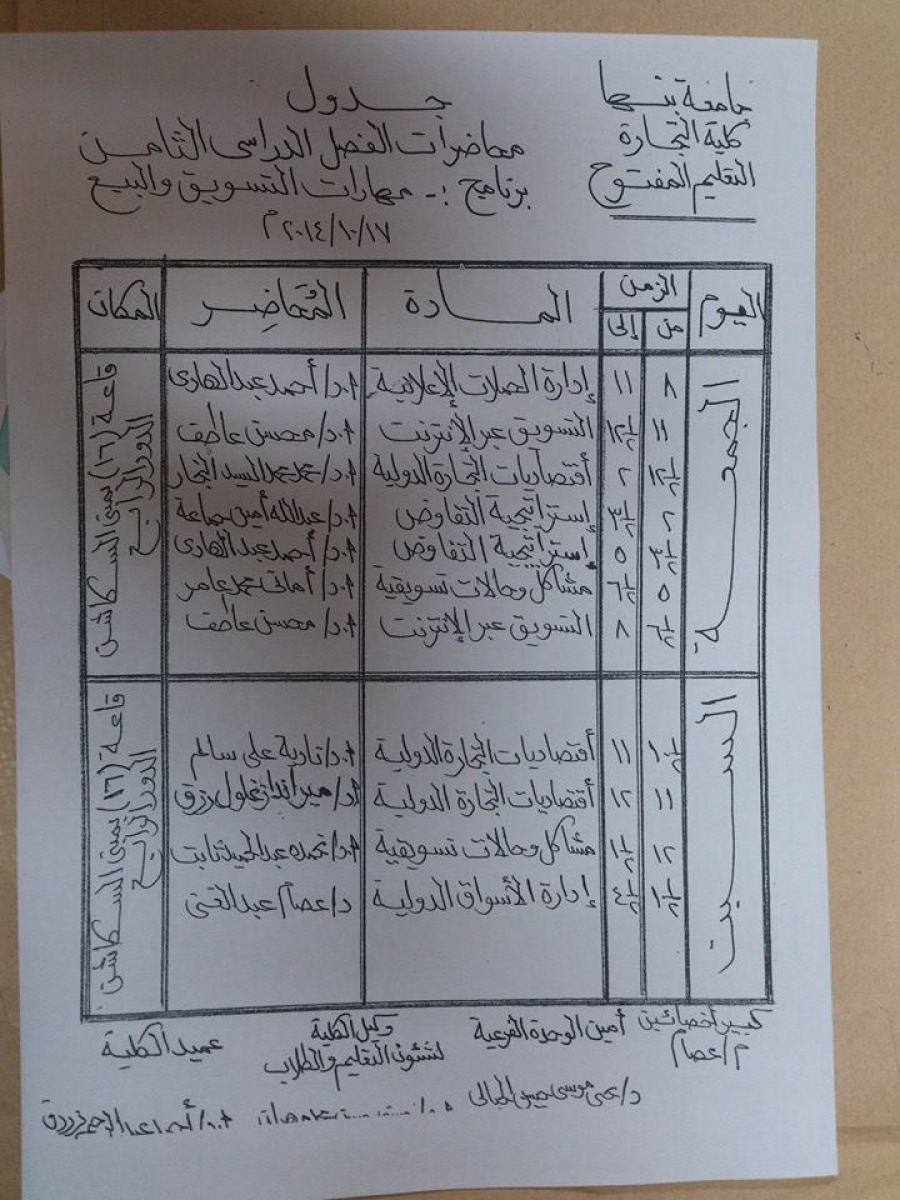 جامعة بنها
كلية التجارة
التعليم المفتوح
جدول
محاضرات الفصل الدراسى الثامن
برنامج :- مهارات التسويق والبيع
٢٠١٤/١٠/١٧م
اليوم الزمن المادة المُحَاضِر المكان
من إلى
الجمعة
٨ ١١ إدارة الحملات الإعلانية أ.د/ أحمد عبد الهادى
١١ ١٢½ التسويق عبر الإنترنت أ.د/ محسن عاطف
١٢½ ٢ أقتصاديات التجارة الدولية أ.د/ محمد محمد السيد النجار
٢ ٣½ إستراتيجية التفاوض أ.د/ عبدالله أمين جماعة
٣½ ٥ إستراتيجية التفاوض أ.د/ أحمد عبد الهادى
٥ ٦½ مشاكل وحالات تسويقية أ.د/ أمانى محمد عامر
٦½ ٨ التسويق عبر الإنترنت أ.د/ محسن عاطف
قاعة (١٦) بمبنى السكاشن
الدور الرابع
السبت
١½ ١١ أقتصاديات التجارة الدولية أ.د/ نادية على سالم
١١ ١٢ أقتصاديات التجارة الدولية أ.د/ ميراندا زغلول رزق
١٢ ١½ مشاكل وحالات تسويقية أ.د/ عبد الحميد ثابت
١½ ٤½ إدارة الأسواق الدولية د/ عصام عبد الغنى
قاعة (١٦) بمبنى السكاشن
الدور الرابع
كبير أخصائين أمين الوحدة الفرعية وكيل الكلية عميد الكلية
م/ عصام لشئون التعليم والطلاب